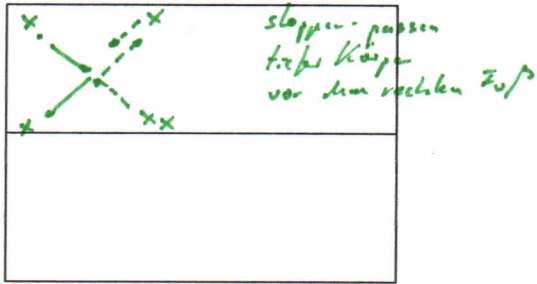 stoppen - passen
tiefer Körper
vor dem rechten Fuß